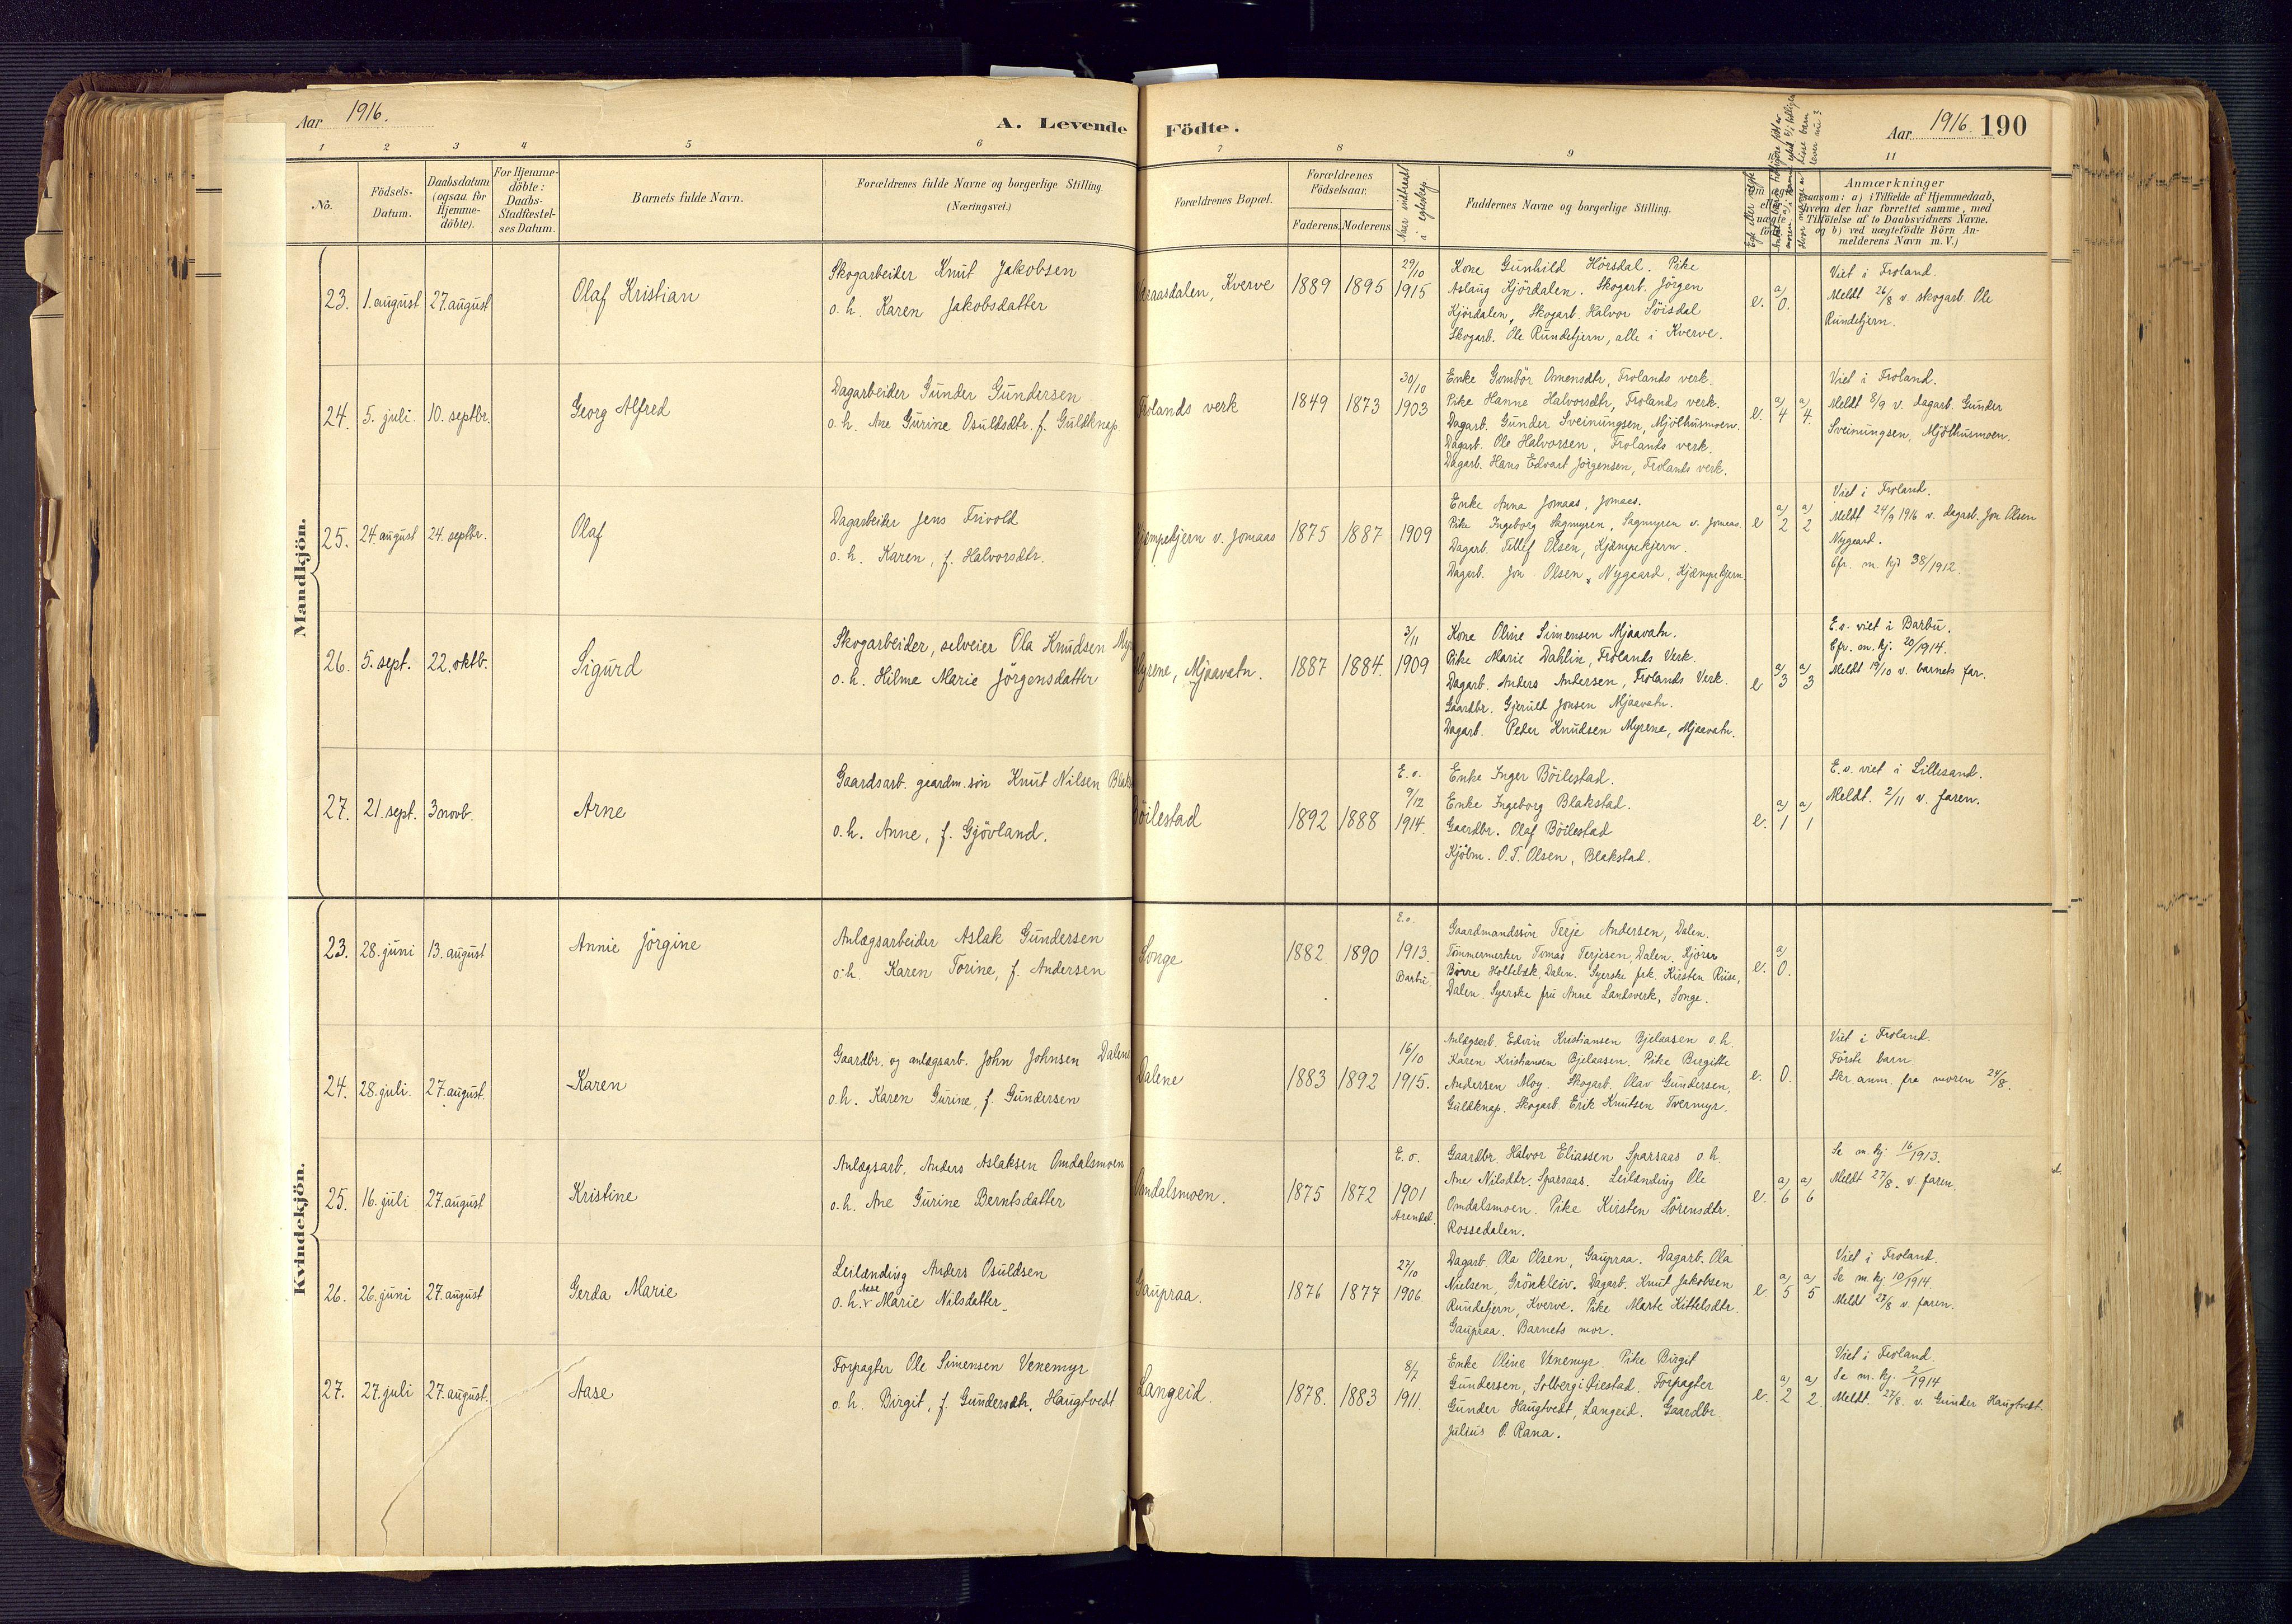 Aar 1916.
A. Levende Födte.
Aar 1916. 190
1 2 3 4 5 6 7 8 9 11
No.
Födsels-Datum.
Daabsdatum (ogsaa for Hjemme-döbte).
For Hjemme-döbte: Daabs-Stadfæstel-ses Datum.
Barnets fulde Navn.
Forældrenes fulde Navne og borgerlige Stilling. (Næringsvei.)
Forældrenes Bopæl.
Forældrenes Födselsaar.
Faderens. Moderens.
Naar indtraadt i egteskap
Faddernes Navne og borgerlige Stilling.
Anmærkninger
saasom: a) i Tilfælde af Hjemmedaab,
hvem der har forrettet samme, med
Tilföielse af to Daabsvidners Navne.
og b) ved uægtefödte Börn An-
melderens Navn m. V.)
Mandkjön.
23. 1. august 27. august Olaf Kristian
Skogarbeider Knut Jakobsen
o. h. Karen Jakobsdatter
raasdalen, Kverve 1889 1895 29/10 1915
Kone Gunhild Hörsdal. Pike
Aslaug Kjördalen. Skogarb. Jörgen
Kjördalen, Skogarb. Halvor Söisdal
Skogarb. Ole Rundetjern, alle i Kverve.
e. a) 0.
Viet i Froland.
Meldt 26/8 v. skogarb. Ole
Rundetjern.
24. 5. juli. 10. septbr. Georg Alfred
Dagarbeider Gunder Gundersen
o. h. Ane Gurine Osuldsdtr. f. Guldknap
Frolands verk 1849 1873 30/10 1903
Enke Gombör Omensdtr, Frolands verk.
Pike Hanne Halvorsdtr, Frolands verk.
Dagarb. Gunder Sveinungsen, Mjölhusmoen.
Dagarb. Ole Halvorsen, Frolands verk.
Dagarb. Hans Edvart Jörgensen, Frolands verk.
e. a) 4 a) 4.
Viet i Froland.
Meldt 8/9 v. dagarb. Gunder
Sveinungsen, Mjölhusmoen.
25. 24. august 24. septbr. Olaf
Dagarbeider Jens Frivold
o. h. Karen, f. Halvorsdtr.
Kjempekjern v. Jomaas 1875 1887 1909
Enke Anna Jomaas, Jomaas.
Pike Ingeborg Sagmyren, Sagmyren v. Jomaas.
Dagarb. Tellef Olsen, Kjæmpekjern.
Dagarb. Jon Olsen Nygaard, Kjæmpekjern
e a) 2 a) 2
Viet i Froland.
Meldt 24/9 1916 v. dagarb. Jon Olsen
Nygaard.
Cfr. m. kjö 38/1912.
26. 5. sept. 22. oktb. Sigurd
Skogarbeider, selveier Ola Knudsen Myr
o. h. Hilma Marie Jörgensdatter
Myrene, Mjaavatn. 1887 1884. 3/11 1909
Kone Oline Simensen Mjaavatn.
Pike Marie Dahlin, Frolands Verk.
Dagarb. Anders Andersen, Frolands Verk.
Gaardbr. Gjeruld Jonsen Mjaavatn.
Dagarb. Peder Knudsen Myrene, Mjaavatn.
e a) 3 a) 3
E. o. viet i Barbu.
Cfr. m. kj. 20/1914.
Meldt 19/10 v. barnets far.
27. 21. sept. 3 novb. Arne
Gaardsarb. gaardm. sön Knut Nilsen Blaks
o. h. Anne, f. Gjövland.
Böilestad 1892 1888 E. o. 9/12 1914.
Enke Inger Böilestad.
Enke Ingeborg Blakstad.
Gaardbr. Olaf Böilestad
Kjöbm. O. T. Olsen, Blakstad.
e. a) 1 a) 1
E. o. viet i Lillesand.
Meldt. 2/11 v. faren.
Kvindekjön.
23. 28. juni 13. august Annie Jörgine
Anlægsarbeider Aslak Gundersen
o. h. Karen Torine, f. Andersen
Songe 1882 1890 E. o. 1913. Barbu.
Gaardmandssön Terje Andersen, Dalen.
Tömmermerker Tomas Terjesen, Dalen.
Börre Holtebæk, Dalen. Syerske frk. Kirsten Riise,
Dalen. Syerske fru Anne Landsverk, Songe.
e. a) 0.
24. 28. juli. 27. august. Karen
Gaardbr. og anlægsarb. John Johnsen Dalene
o. h. Karen Gurine, f. Gundersen
Dalene 1883 1892 16/10 1915.
Anlægsarb. Edvin Kristiansen Bjelaasen o. h.
Karen Kristiansen Bjelaasen. Pike Birgitte
Andersen Moy. Skogarb. Olav Gundersen,
Guldknap. Skogarb. Erik Knutsen Tvermyr.
e. 0.
Viet i Froland.
Förste barn.
Skr. anm. fra moren 24/8.
25. 16. juli 27. august Kristine
Anlægsarb. Anders Aslaksen Omdalsmoen
o. h. Ane Gurine Berntsdatter
Omdalsmoen. 1875 1872 E. o. 1901 Arendal.
Gaardbr. Halvor Eliassen Sparsaas o. h.
Ane Nilsdtr. Sparsaas. Leilending Ole
Omdalsmoen. Pike Kirsten Sörensdtr.
Rossedalen.
e. a) 6 a) 6
Se m. kj. 16/1913.
Meldt 27/8. v. faren.
26. 26. juni 27. august Gerda Marie
Leilænding Anders Osuldsen
o. h. Aase Marie Nilsdatter.
Gaupraa. 1876 1877 27/10 1906.
Dagarb. Ola Olsen, Gaupraa. Dagarb. Ola
Nielsen, Grönkleiv. Dagarb. Knut Jakobsen
Rundetjern, Kverve. Pike Marte Kittelsdtr.
Gaupraa. Barnets mor.
e. a) 5 a) 5
Viet i Froland.
Se m. kj. 10/1914.
Meldt 27/8 v. faren.
27. 27. juli 27. august. Aase
Forpagter Ole Simensen Venemyr
o. h. Birgit, f. Gundersdtr. Haugtvedt
Langeid. 1878. 1883 8/7 1911.
Enke Oline Venemyr. Pike Birgit
Gundersen, Solbergi Öiestad. Forpagter
Gunder Haugtvedt, Langeid. Gaardbr.
Julius O. Rana.
e. a) 2 a) 2.
Viet i Froland.
Se m. kj. 2/1914
Meldt. 27/8. v. Gunder Haugtvedt.